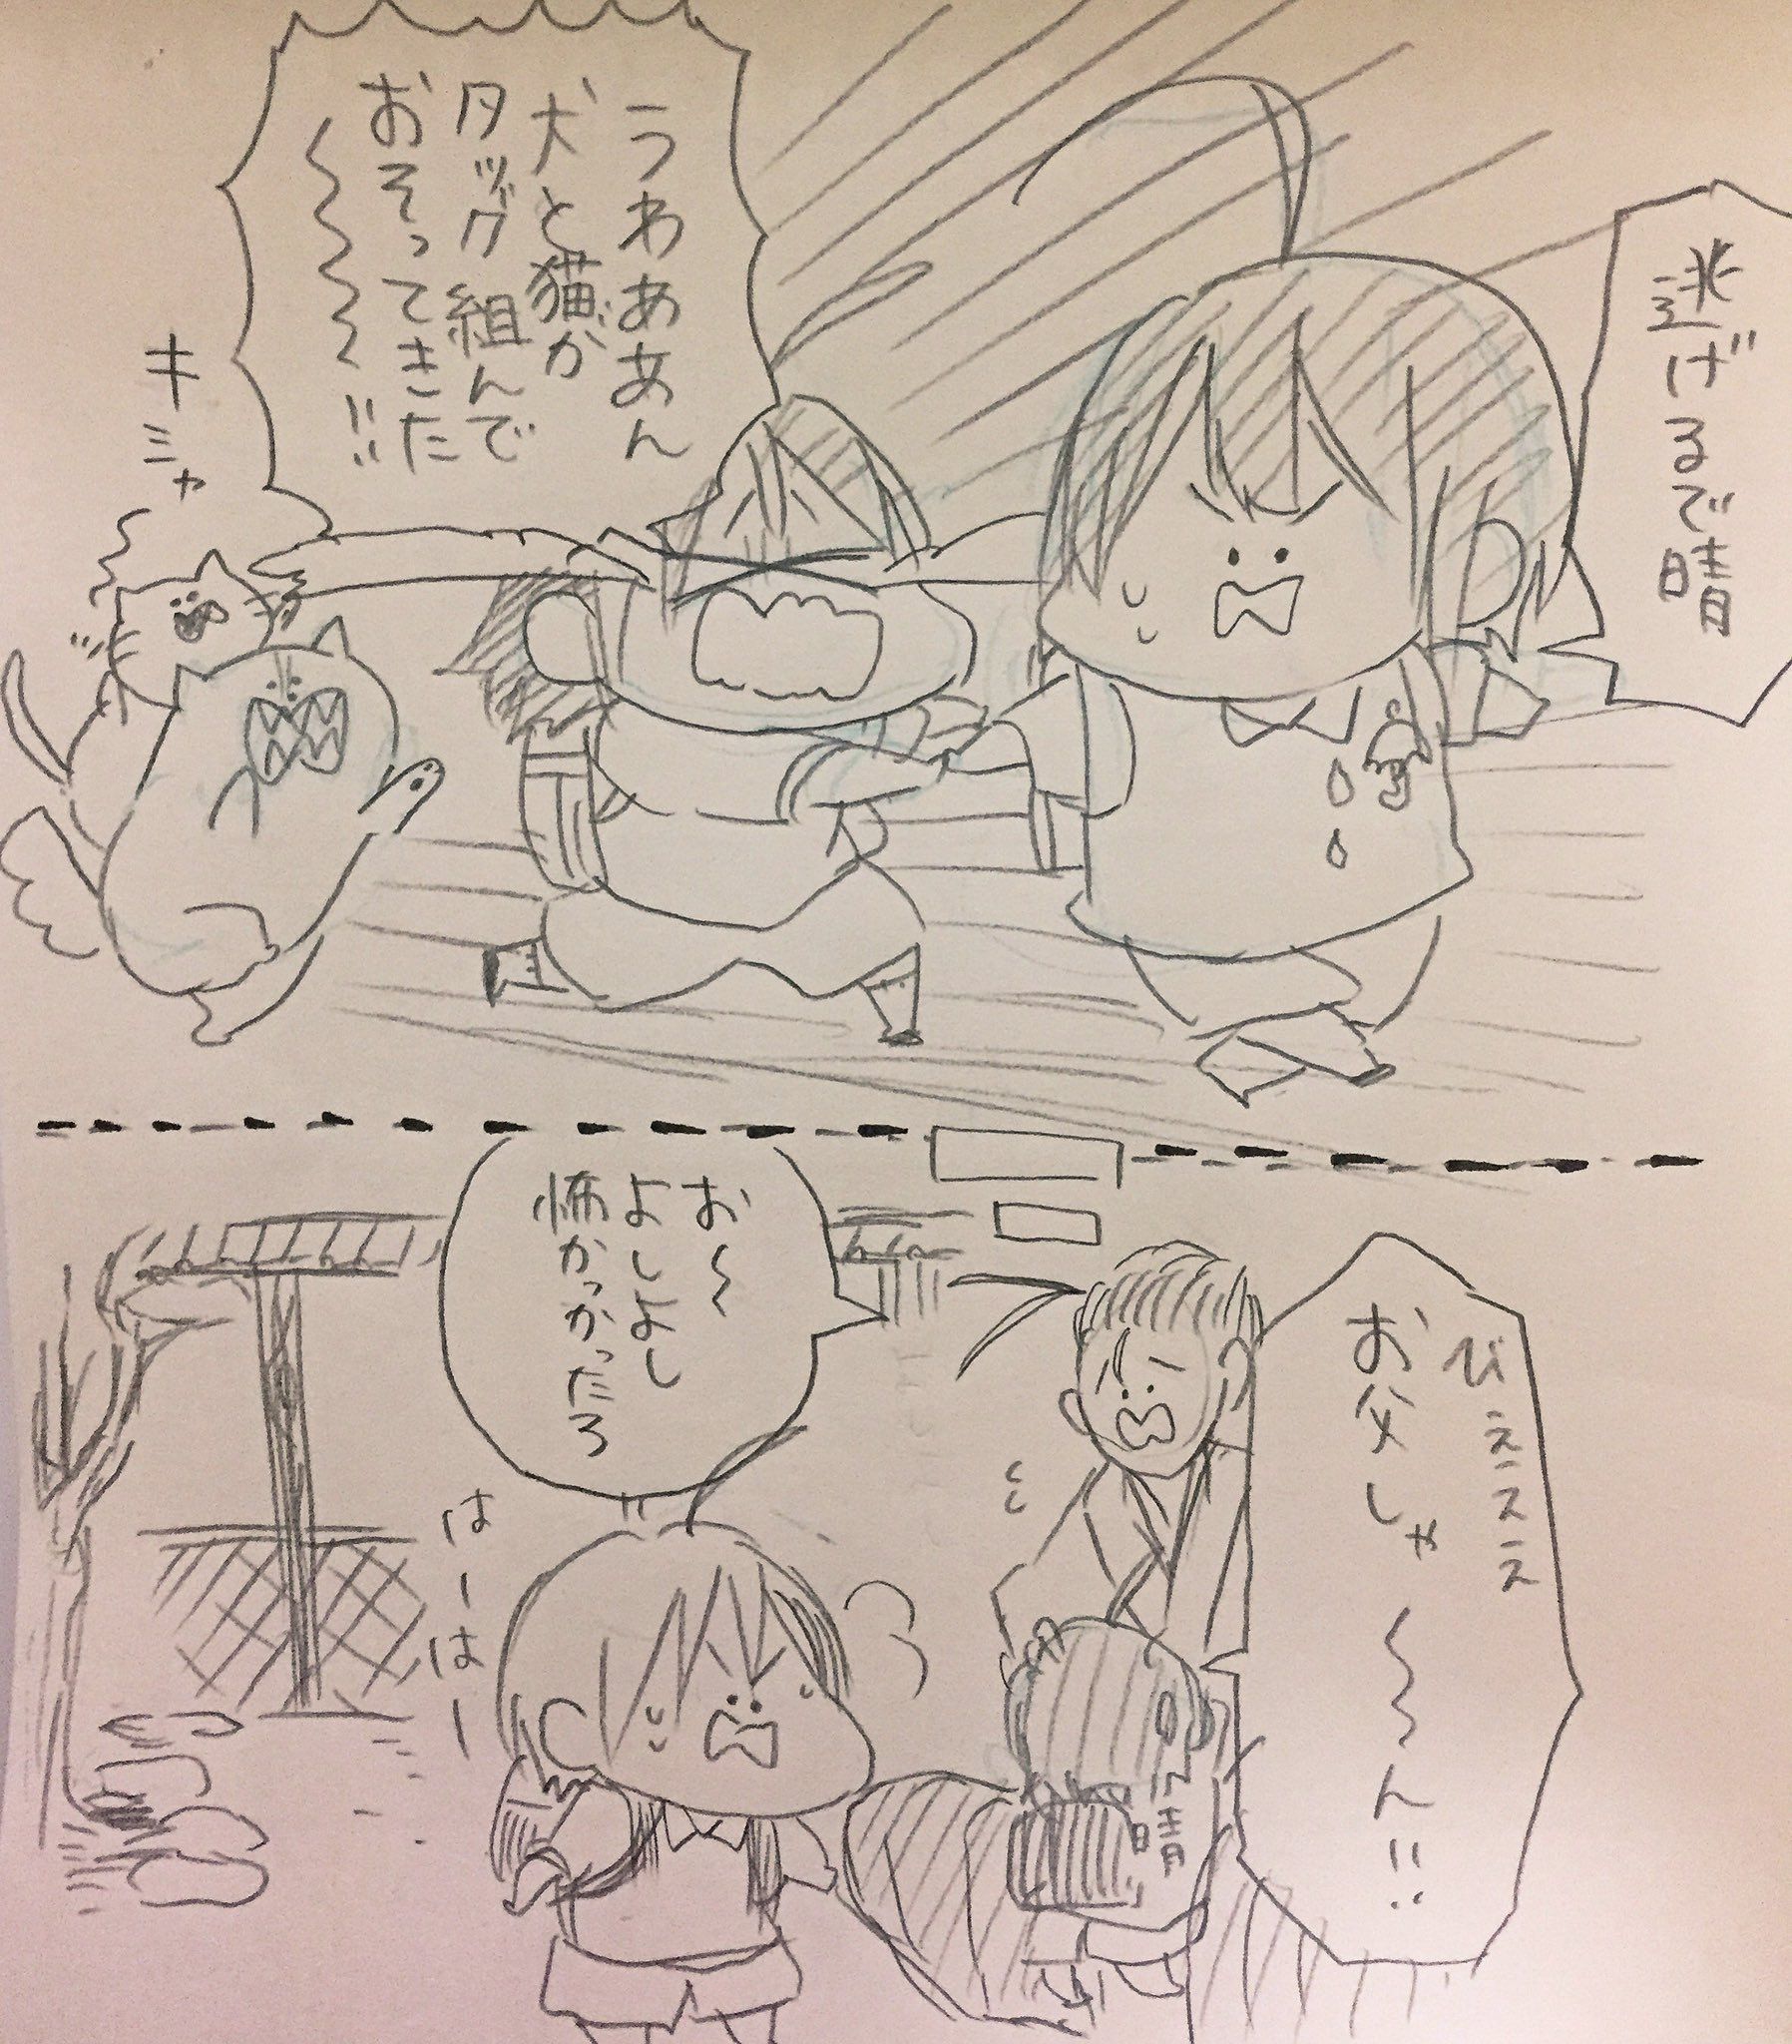 逃げるで晴
うわああん
犬と猫が
タッグ組んで
おそってきた
〜〜〜〜!!
キシャ
びえええ
お父しゃ〜〜ん!!
お〜
よしよし
怖かっかだろ
はーはー
晴